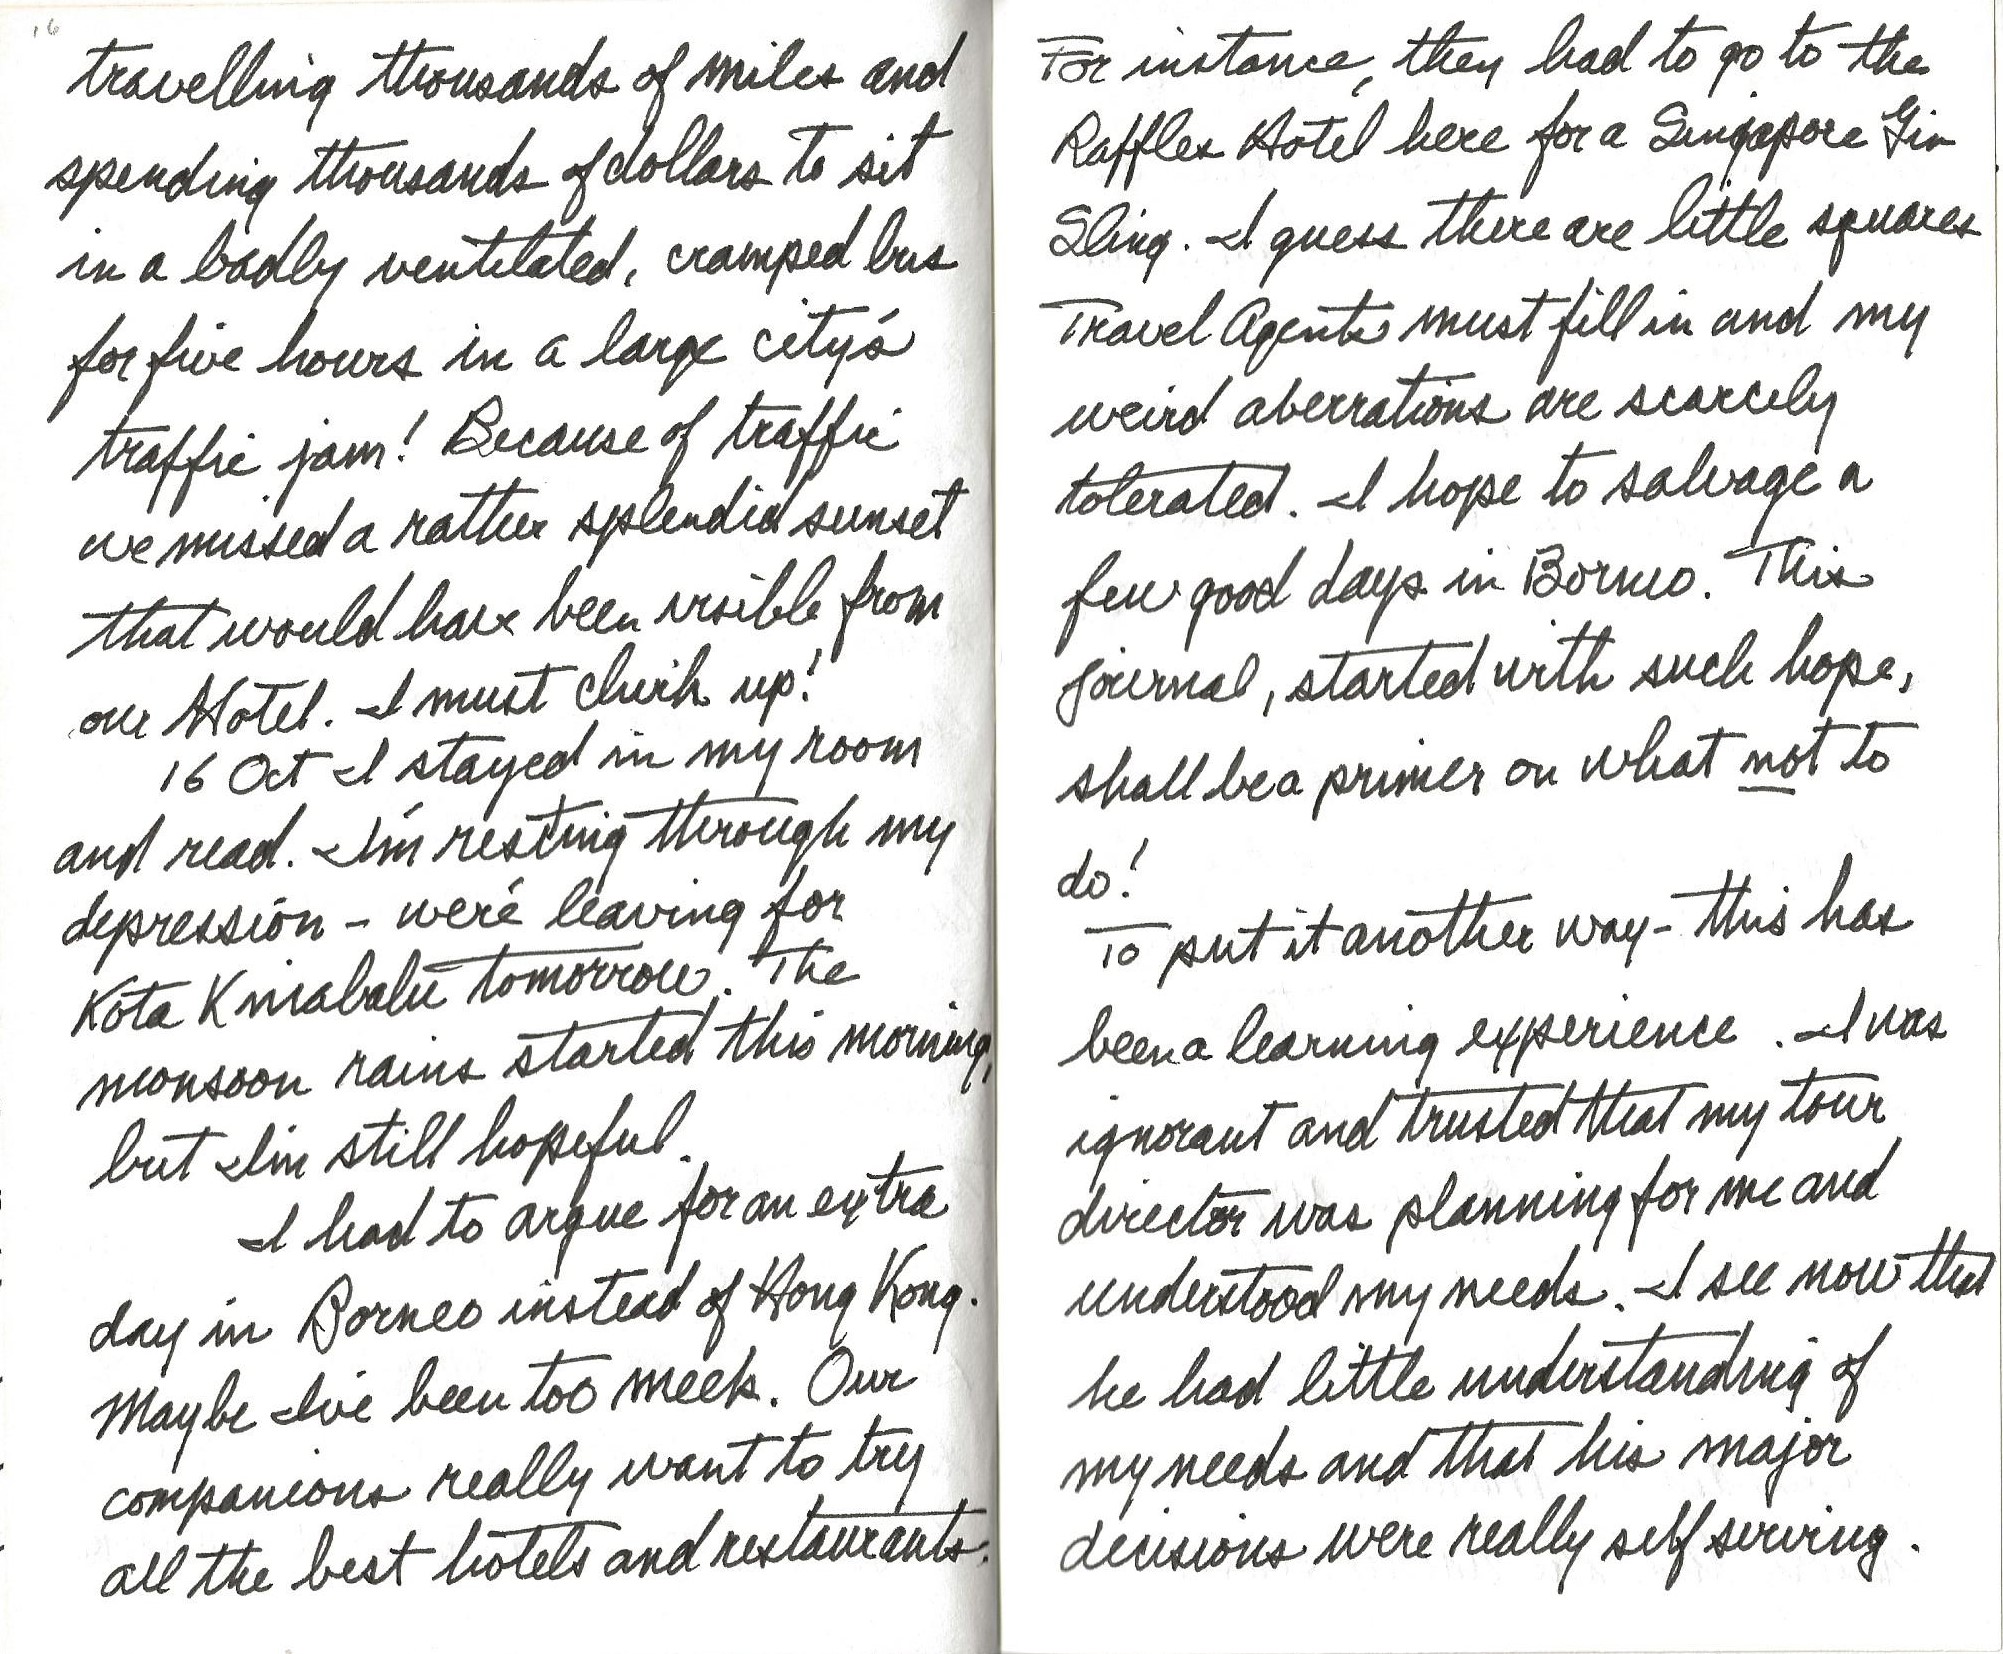 16
travelling thousands of miles and
spending thousands of dollars to sit
in a badly ventilated, cramped bus
for five hours in a large city's
traffic jam! Because of traffic
we missed a rather splendid sunset
that would have been visible from
our Hotel. I must chirk up!
16 Oct I stayed in my room
and read. I'm resting through my
depression - we're leaving for
Kota Kinabalu tomorrow. The
monsoon rains started this morning,
but I'm still hopeful.
I had to argue for an extra
day in Borneo instead of Hong Kong.
Maybe I've been too meek. Our
companions really want to try
all the best hotels and restaurants.
For instance, they had to go to the
Raffles Hotel here for a Singapore Gin
Sling. I guess there are little squares
Travel Agents must fill in and my
weird aberrations are scarcely
tolerated. I hope to salvage a
few good days in Borneo. This
journal, started with such hope,
shall be a primer on what not to
do!
To put it another way - this has
been a learning experience. I was
ignorant and trusted that my tour
director was planning for me and
understood my needs. I see now that
he had little understanding of
my needs and that his major
decisions were really self serving.